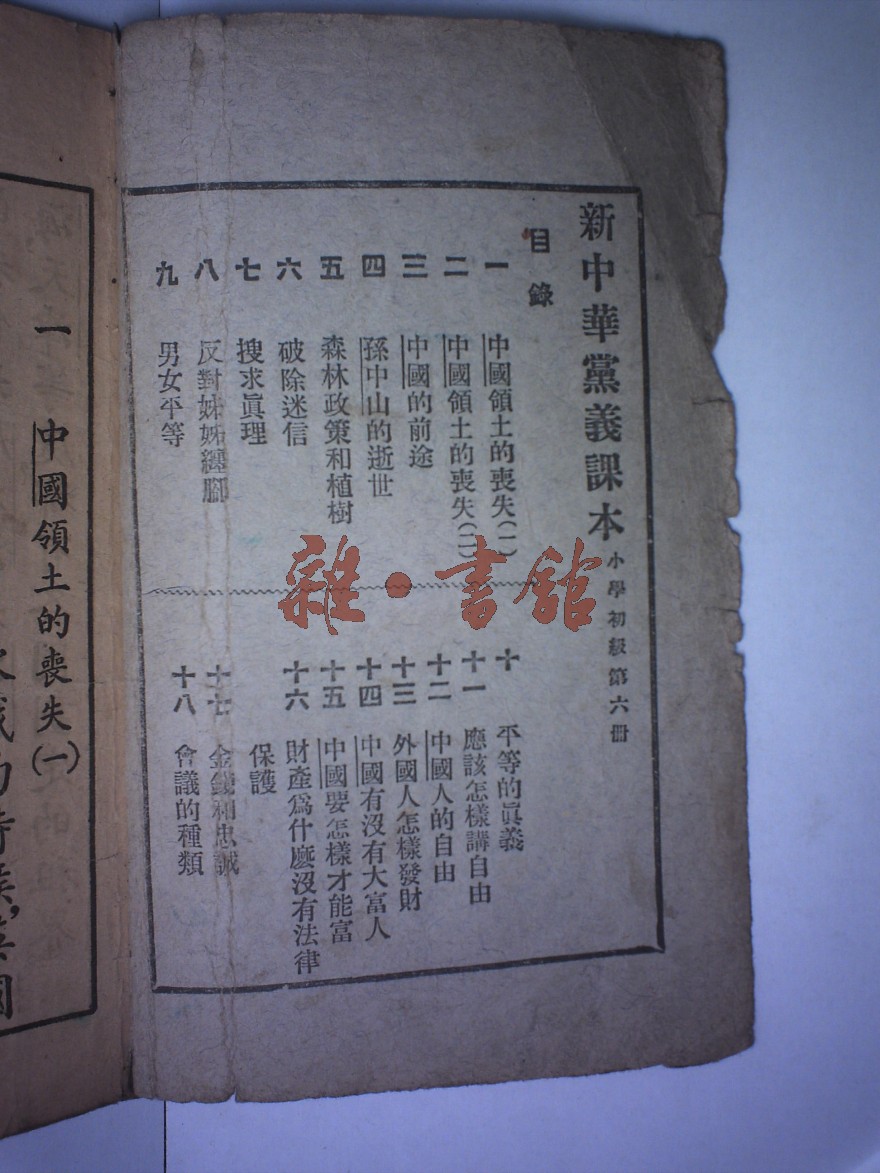 新中華黨義課本 小學初級第六冊
目錄
一 中國領土的喪失(一)
二 中國領土的喪失(二)
三 中國的前途
四 孫中山的逝世
五 森林政策和植樹
六 破除迷信
七 搜求眞理
八 反對姊姊纏腳
九 男女平等
十 平等的眞義
十一 應該怎樣講自由
十二 中國人的自由
十三 外國人怎樣發財
十四 中國有沒有大富人
十五 中國要怎樣才能富
十六 財產爲什麼沒有法律
保護
十七 金錢和忠誠
十八 會議的種類
雜·書館
一 中國領土的喪失(一)